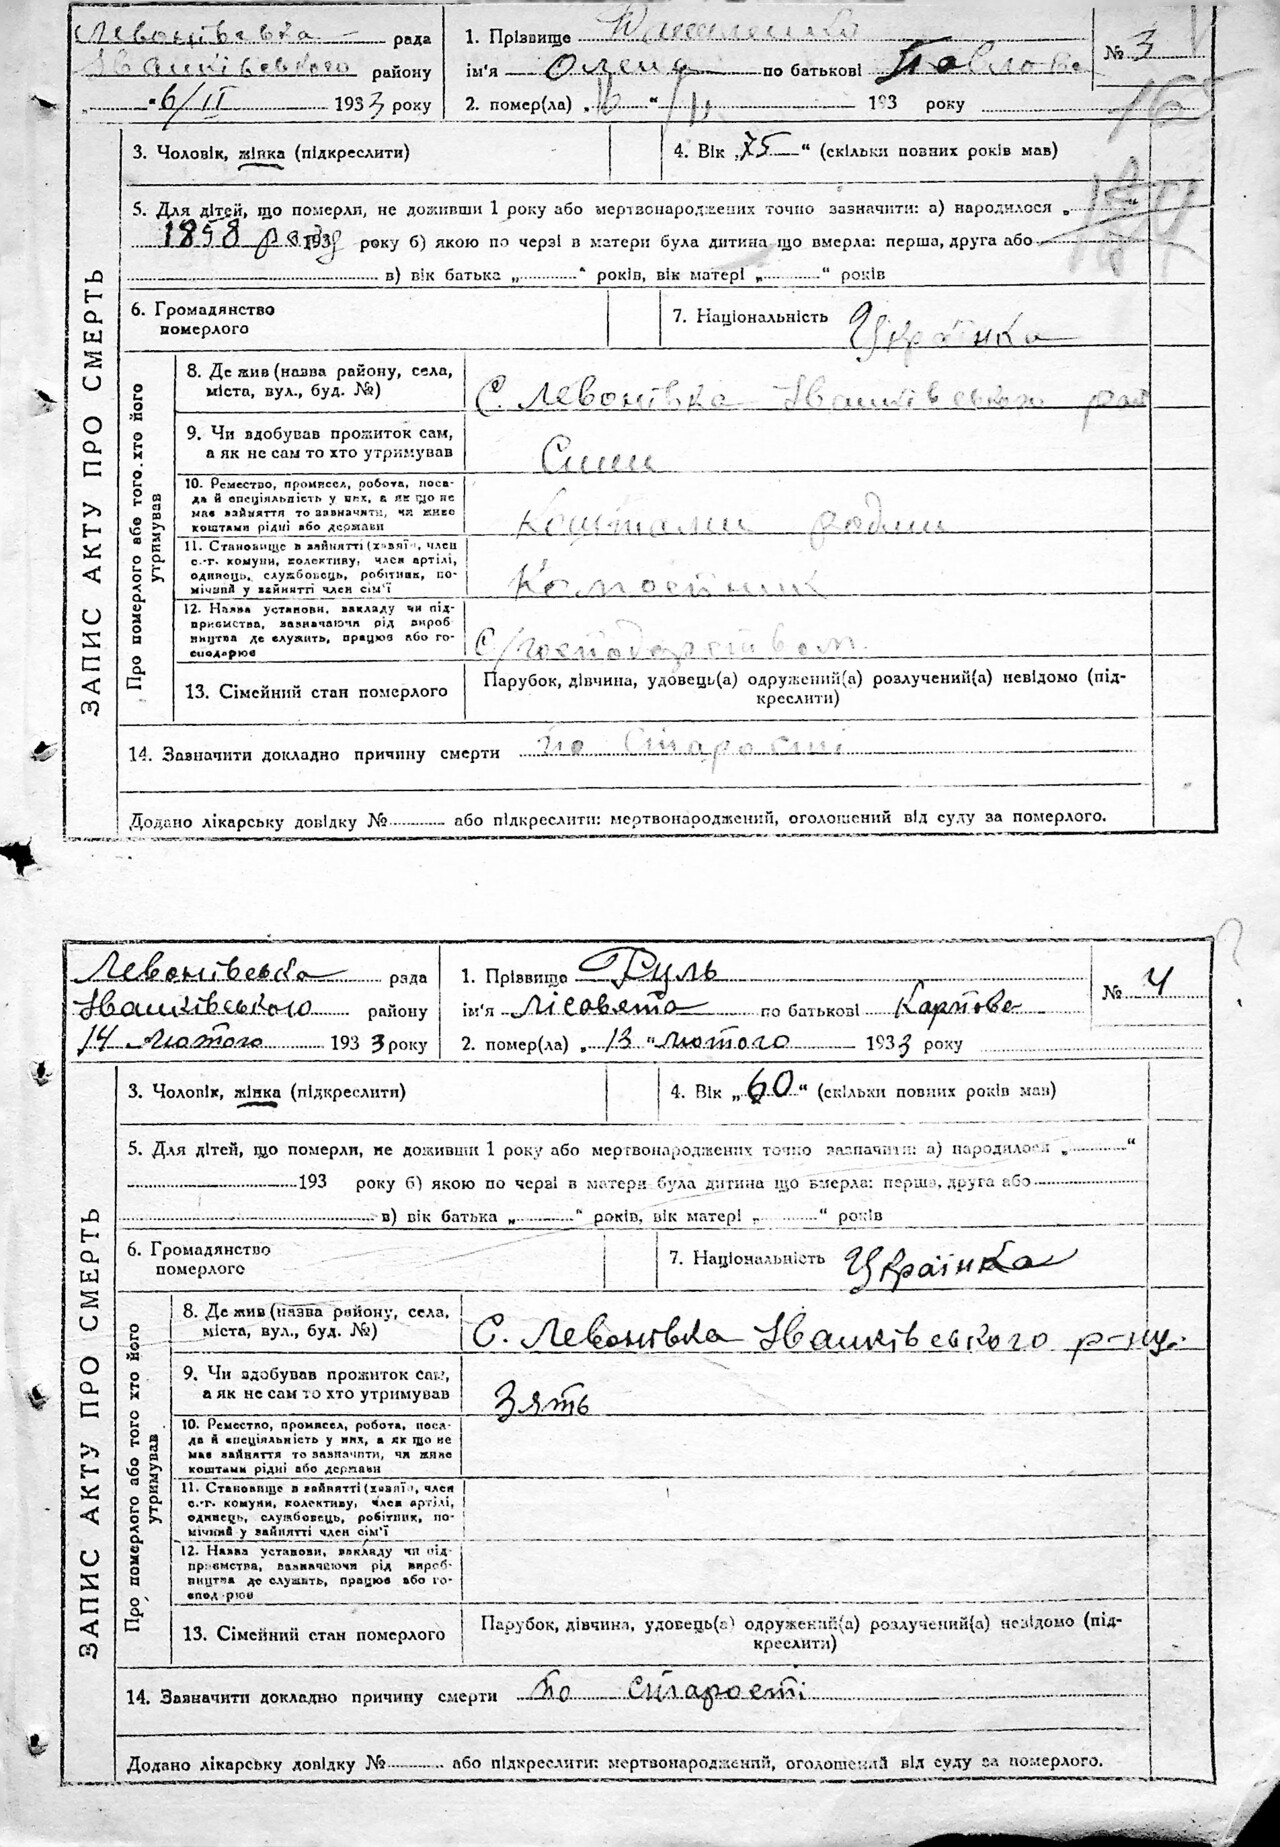 Левонівська рада
Іванківського району
"6/II 1933 року
1. Прізвище
ім'я Олена по батькові Павлова
2. помер(ла) „ " 193 року
№ 3
3. Чоловік, жінка (підкреслити)
4. Вік „75" (скільки повних років мав)
5. Для дітей, що померли, не доживши 1 року або мертвонароджених точно зазначити: а) народилося „ "
1858 року 193 року б) якою по черзі в матери була дитина що вмерла: перша, друга або
в) вік батька „ " років, вік матері „ " років
6. Громадянство
померлого
7. Національність Українка
ЗАПИС АКТУ ПРО СМЕРТЬ
Про померлого або того, хто його
утримував
8. Де жив (назва району, села,
міста, вул., буд. №)
С. Левонівка Іванківського рай
9. Чи здобував прожиток сам,
а як не сам то хто утримував
Сини
10. Ремество, промисел, робота, поса-
да й спеціяльність у них, а як що не
має зайняття то зазначити, чи живе
коштами рідні або держави
Коштами родин
11. Становище в зайнятті (хазяїн, член
с.-г. комуни, колективу, член артілі,
одинець, службовець, робітник, по-
мічний у зайнятті член сім'ї
12. Назва установи, закладу чи під-
приємства, зазначаючи рід вироб-
ництва де служить, працює або го-
сподарює
С/господарством
13. Сімейний стан померлого
Парубок, дівчина, удовець(а) одружений(а) розлучений(а) невідомо (під-
креслити)
14. Зазначити докладно причину смерти по старості
Додано лікарську довідку № або підкреслити: мертвонароджений, оголошений від суду за померлого.
Левонівська рада
Іванківського району
14 лютого 1933 року
1. Прізвище Руль
ім'я Лісовета по батькові Карпова
2. помер(ла) „13" лютого 1933 року
№ 4
3. Чоловік, жінка (підкреслити)
4. Вік „60" (скільки повних років мав)
5. Для дітей, що померли, не доживши 1 року або мертвонароджених точно зазначити: а) народилося „ "
193 року б) якою по черзі в матери була дитина що вмерла: перша, друга або
в) вік батька „ " років, вік матері „ " років
6. Громадянство
померлого
7. Національність Українка
ЗАПИС АКТУ ПРО СМЕРТЬ
Про померлого або того хто його
утримував
8. Де жив (назва району, села,
міста, вул., буд. №)
С. Левонівка Іванківського р-ну.
9. Чи здобував прожиток сам,
а як не сам то хто утримував
Зять
10. Ремество, промисел, робота, поса-
да й спеціяльність у них, а як що не
має зайняття то зазначити, чи живе
коштами рідні або держави
11. Становище в зайнятті (хазяїн, член
с.-г. комуни, колективу, член артілі,
одинець, службовець, робітник, по-
мічний у зайнятті член сім'ї
12. Назва установи, закладу чи під-
приємства, зазначаючи рід вироб-
ництва де служить, працює або го-
сподарює
13. Сімейний стан померлого
Парубок, дівчина, удовець(а) одружений(а) розлучений(а) невідомо (під-
креслити)
14. Зазначити докладно причину смерти по старості
Додано лікарську довідку № або підкреслити: мертвонароджений, оголошений від суду за померлого.